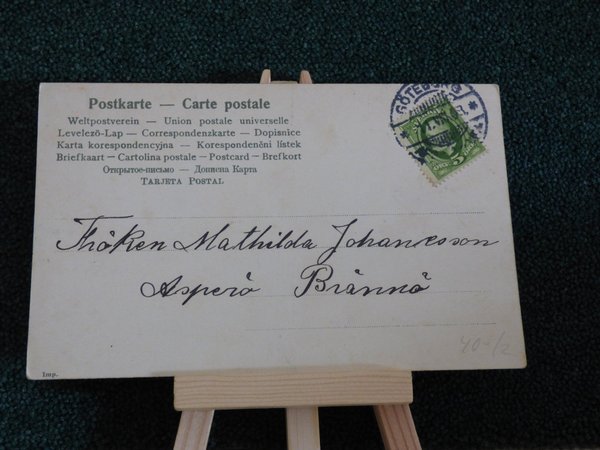 Postkarte — Carte postale
Weltpostverein — Union postale universelle
Levelező-Lap — Correspondenzkarte — Dopisnice
Karta korespondencyjna — Korespondenční lístek
Briefkaart — Cartolina postale — Postcard — Brefkort
Открытое-письмо — Дописна Карта
TARJETA POSTAL
GÖTEBORG
5
Fröken Mathilda Johansson
Asperö Brännö
40-/2
Imp.